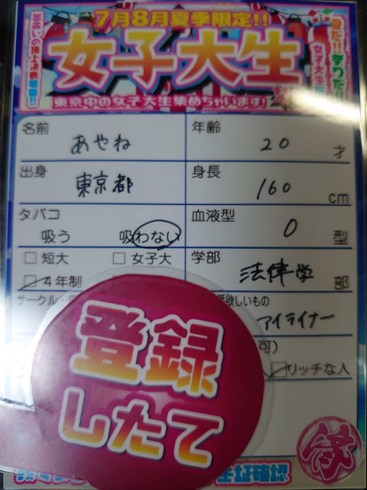 7月8月夏季限定!!
女子大生
東京中の女子大生集めちゃいます!
名前 年齢
あやね 20才
出身 身長
東京都 160cm
タバコ 血液型
吸う 吸わない O型
□短大 □女子大 学部
☑4年制 法律学部
サークル 欲しいもの
アイライナー
可)
☑リッチな人
登録
したて